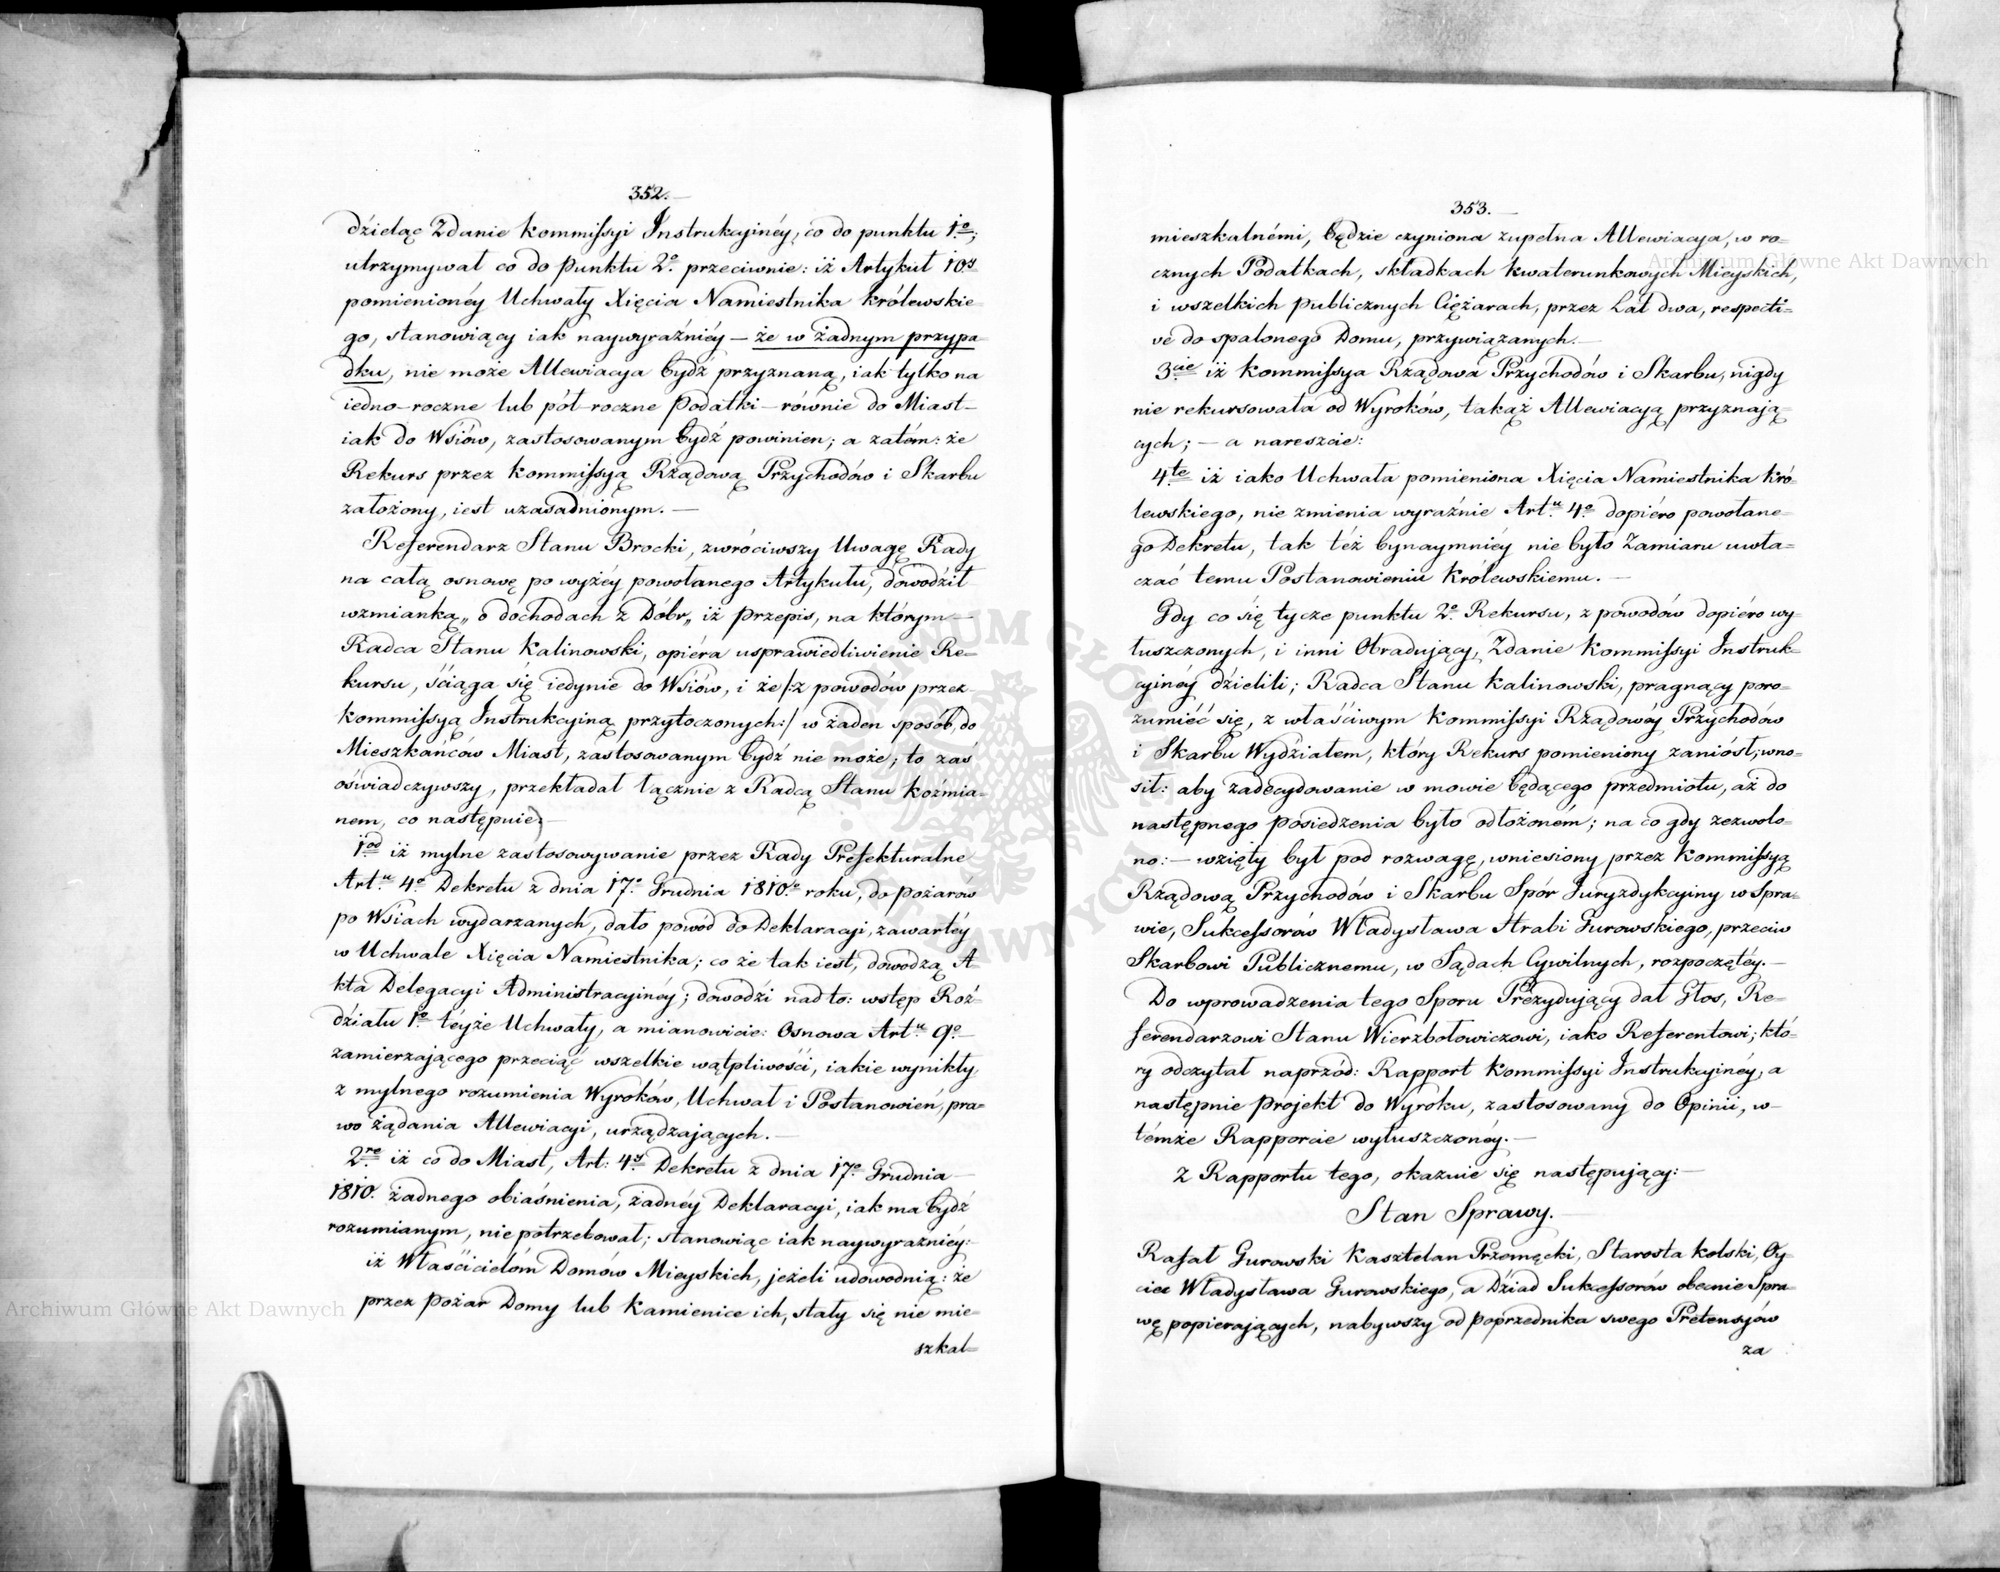 352.
dzieląc Zdanie Kommissyi Instrukcyinéy, co do punktu 1º;
utrzymywał co do Punktu 2º przeciwnie: iż Artykuł 10ʸ
pomienionéy Uchwały Xięcia Namiestnika Królewskie-
go, stanowiący iak naywyraźniéy – że w żadnym przypa-
dku, nie może Allewiacya bydź przyznaną, iak tylko na
iedno-roczne lub pół-roczne Podatki – równie do Miast –
iak do Wsiów, zastosowanym bydź powinien; a zatém: że
Rekurs przez Kommissyą Rządową Przychodów i Skarbu
założony, iest uzasadnionym. –
Referendarz Stanu Brocki, zwróciwszy Uwagę Rady
na całą osnowę po wyżéy powołanego Artykułu, dowodził
wzmianką „o dochodach z Dóbr„ iż Przepis, na którym –
Radca Stanu Kalinowski, opiéra usprawiedliwienie Re-
kursu, ściąga się iedynie do Wsiów, i że /:z powodów przez
Kommissyą Instrukcyiną przytoczonych:/ w żaden sposób, do
Mieszkańców Miast, zastosowanym bydź nie może; to zaś
oświadczywszy, przekładał łącznie z Radcą Stanu Koźmia-
nem, co następuie: –
1ᵒᵈ iż mylne zastosowywanie przez Rady Prefekturalne
Artᵘ 4º Dekretu z dnia 17º Grudnia 1810º roku, do Pożarów
po Wsiach wydarzanych, dało powód do Deklaracyi, zawartéy
w Uchwale Xięcia Namiestnika; co że tak iest, dowodzą A-
kta Delegacyi Administracyinéy; dowodzi nadto: wstęp Roz-
działu 1º téyże Uchwały, a mianowicie: Osnowa Artᵘ 9º –
zamierzającego przeciąć wszelkie wątpliwości, iakie wynikły
z mylnego rozumienia Wyroków, Uchwał i Postanowień, pra-
wo żądania Allewiacyi, urządzających. –
2ʳᵉ iż co do Miast, Art: 4ʸ Dekretu z dnia 17º Grudnia –
1810. żadnego obiaśnienia, żadnéy Deklaracyi, iak ma bydź
rozumianym, nie potrzebował; stanowiąc iak naywyraźniéy:
iż Właścicielóm Domów Mieyskich, jeżeli udowodnią: że
przez Pożar Domy lub Kamienice ich, stały się nie mie-
szkal-
353.
mieszkalnémi, będzie czyniona zupełna Allewiacya, w ro-
cznych Podatkach, składkach Kwaterunkowych Mieyskich,
i wszelkich Publicznych Ciężarach, przez Lat dwa, respecti-
ve do spalonego Domu, przywiązanych. –
3ᶜⁱᵉ iż Kommissya Rządowa Przychodów i Skarbu, nigdy
nie rekursowała od Wyroków, takąż Allewiacyą przyznają-
cych; – a nareszcie:
4ᵗᵉ iż iako Uchwała pomieniona Xięcia Namiestnika Kró-
lewskiego, nie zmienia wyraźnie Artᵘ 4º dopiéro powołane-
go Dekretu, tak téż bynaymniéy nie było Zamiaru uwła-
czać temu Postanowieniu Królewskiemu. –
Gdy co się tycze punktu 2º Rekursu, z powodów dopiéro wy-
łuszczonych, i inni Obradujący, Zdanie Kommissyi Instruk-
cyinéy dzielili; Radca Stanu Kalinowski, pragnący poro-
zumiéć się, z właściwym Kommissyi Rządowéy Przychodów
i Skarbu Wydziałem, który Rekurs pomieniony zaniósł; wno-
sił: aby zadecydowanie w mowie będącego przedmiotu, aż do
następnego Posiedzenia było odłożoném; na co gdy zezwolo-
no: – wzięty był pod rozwagę, wniesiony przez Kommissyą
Rządową Przychodów i Skarbu Spór Juryzdykcyiny w Spra-
wie, Sukcessorów Władysława Hrabi Gurowskiego, przeciw
Skarbowi Publicznemu, w Sądach Cywilnych, rozpoczętéy. –
Do wprowadzenia tego Sporu Prezydujący dał Głos, Re-
ferendarzowi Stanu Wierzbołowiczowi, iako Referentowi; któ-
ry odczytał naprzód: Rapport Kommissyi Instrukcyinéy, a
następnie Projekt do Wyroku, zastosowany do Opinii, w –
témże Rapporcie wyłuszczonéy. –
Z Rapportu tego, okazuie się następujący: –
Stan Sprawy. –
Rafał Gurowski Kasztelan Przemęcki, Starosta Kolski, Oy-
ciec Władysława Gurowskiego, a Dziad Sukcessorów obecnie Spra-
wę popierających, nabywszy od poprzednika swego Pretensyów
za
Archiwum Główne Akt Dawnych
Archiwum Główne Akt Dawnych
ARCHIWUM GŁÓWNE AKT DAWNYCH